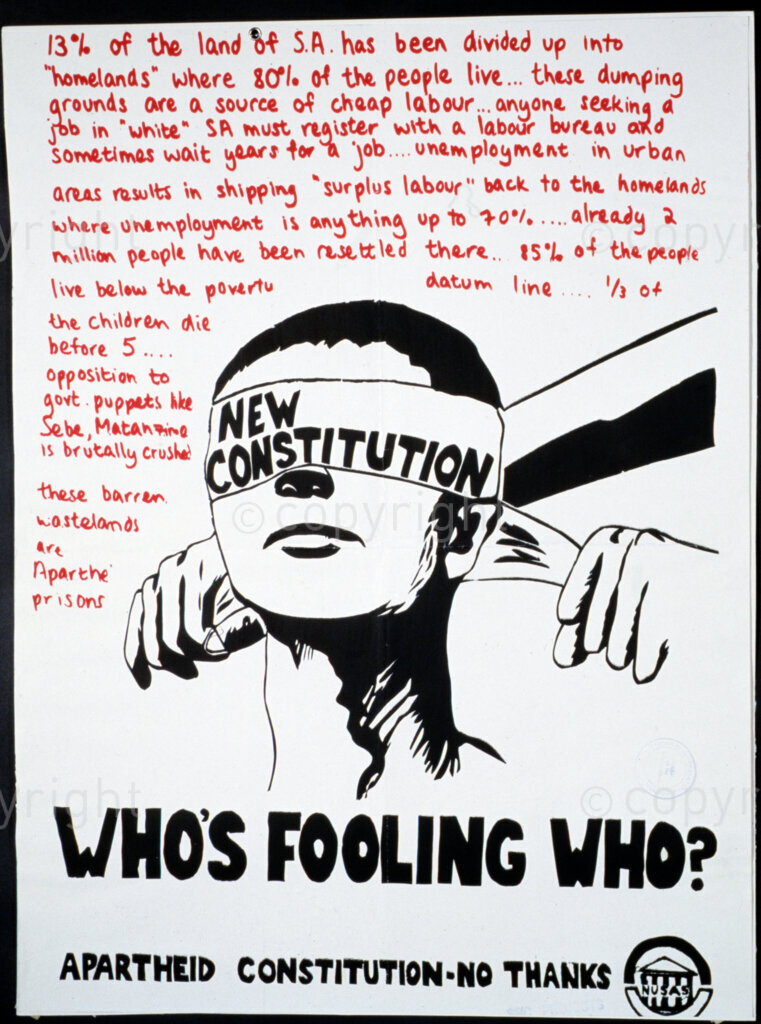 13% of the land of S.A. has been divided up into
"homelands" where 80% of the people live... these dumping
grounds are a source of cheap labour...anyone seeking a
job in "white" SA must register with a labour bureau and
sometimes wait years for a job....unemployment in urban
areas results in shipping "surplus labour" back to the homelands
where unemployment is anything up to 70%....already 2
million people have been resettled there.. 85% of the people
live below the poverty datum line .... 1/3 of
the children die
before 5....
opposition to
govt. puppets like
Sebe, Matanzima
is brutally crushed
these barren
wastelands
are
Aparthe
prisons
NEW
CONSTITUTION
© copyright
WHO'S FOOLING WHO?
APARTHEID CONSTITUTION-NO THANKS
NUSAS